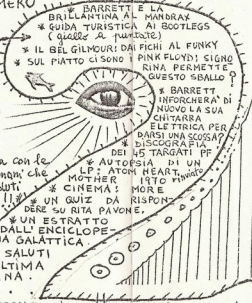 MERO
* BARRETT E LA
BRILLANTINA AL MANDRAX
* GUIDA TURISTICA AI BOOTLEGS
(giallo a puntate)
* IL BEL GILMOUR: DAI FICHI AL FUNKY
* SUL PIATTO CI SONO I PINK FLOYD! SIGNO
RINA PERMETTE
QUESTO SBALLO?
* BARRETT
INFORCHERA' DI
NUOVO LA SUA
CHITARRA
ELETTRICA PER
DARSI UNA SCOSSA?
* DISCOGRAFIA
DEI 45 TARGATI PF
* AUTOPSIA DI UN
LP: ATOM HEART
MOTHER 1970 rinviato
* CINEMA: MORE
* UN QUIZ DA RISPON-
DERE SU RITA PAVONE.
* UN ESTRATTO
DALL'ENCICLOPE-
IA GALATTICA.
SALUTI
LTIMA
NA.
a con le
che
luti
!!